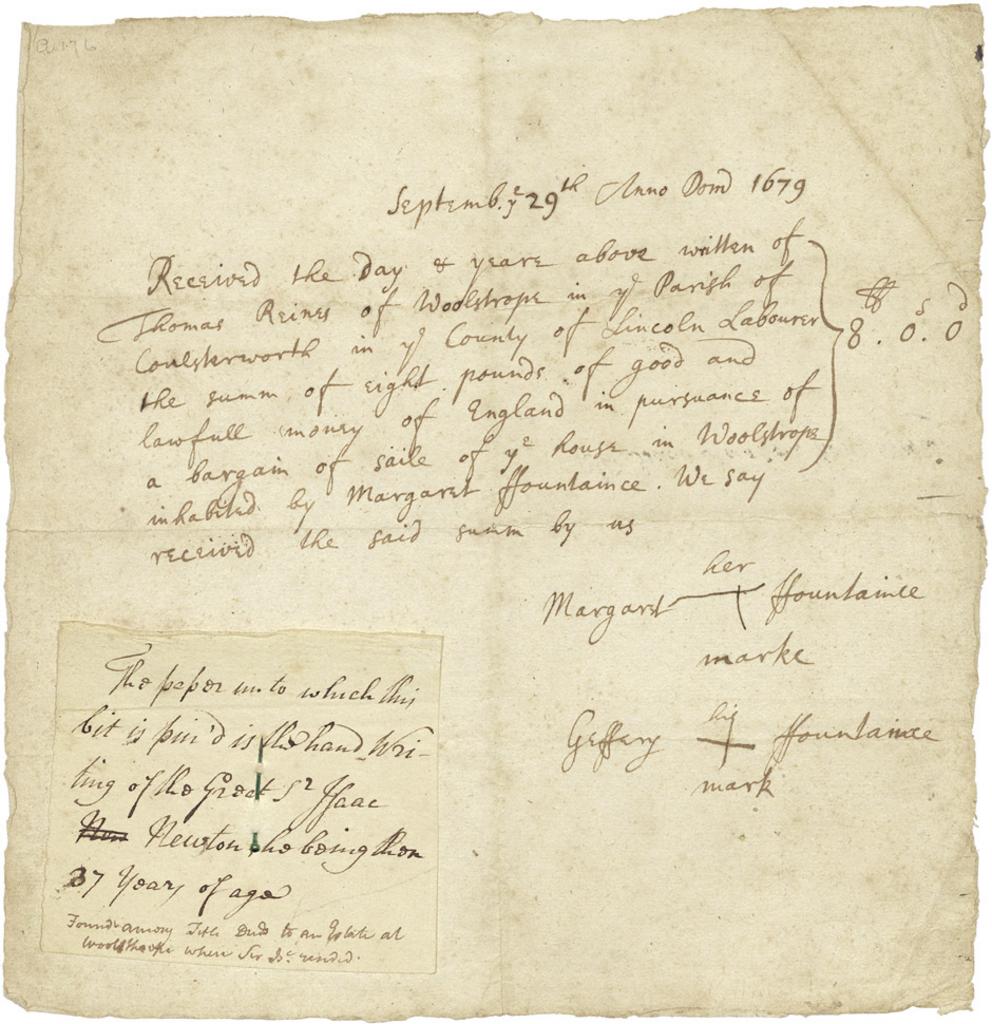 Septemb. yᵉ 29ᵗʰ Anno Dom 1679
Received the Day & yeare above written of
Thomas Reines of Woolstrope in yᵉ Parish of
Coulsterworth in yᵉ County of Lincoln Labourer
the summ of eight pounds of good and
lawfull money of England in pursuance of
a bargain of saile of yᵉ house in Woolstrope
inhabited by Margaret ffountaince. We say
received the said summ by us
ˢ ᵈ
8 . 0 . 0
her
Margaret ffountaince
marke
his
Geffery ffountaince
mark
The peper un to which this
bit is pin'd is the hand Wri-
ting of the Greet Sʳ Isaac
Newton he being then
37 Years of age
Found among Title Deeds to an Estate at
Woolsthorpe where Sir Is.ᶜ resided.